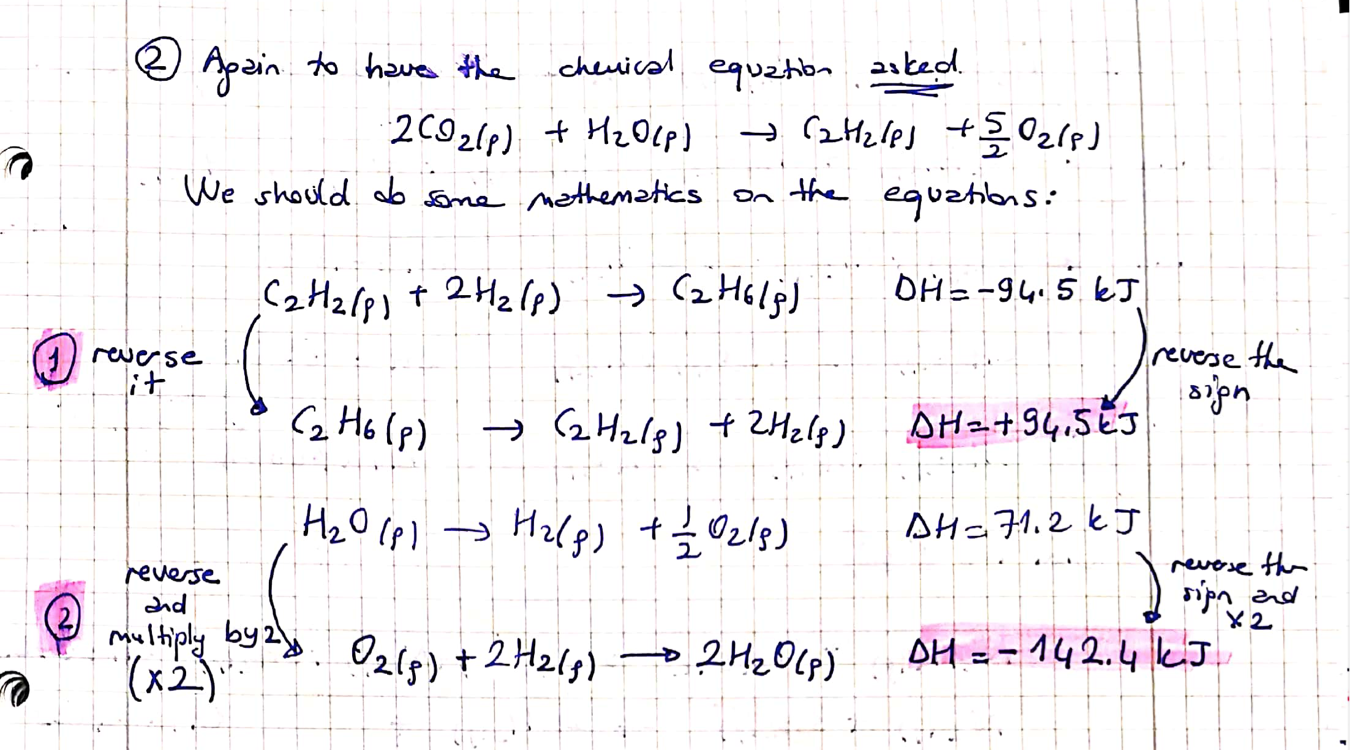 ② Again to have the chemical equation asked.
2CO2(g) + H2O(g) → C2H2(g) + 5/2 O2(g)
We should do some mathematics on the equations:
C2H2(g) + 2H2(g) → C2H6(g) ΔH = -94.5 kJ
① reverse it
reverse the sign
C2H6(g) → C2H2(g) + 2H2(g) ΔH = +94.5 kJ
H2O(g) → H2(g) + 1/2 O2(g) ΔH = 71.2 kJ
② reverse and multiply by 2 (x2)
reverse the sign and x2
O2(g) + 2H2(g) → 2H2O(g) ΔH = -142.4 kJ